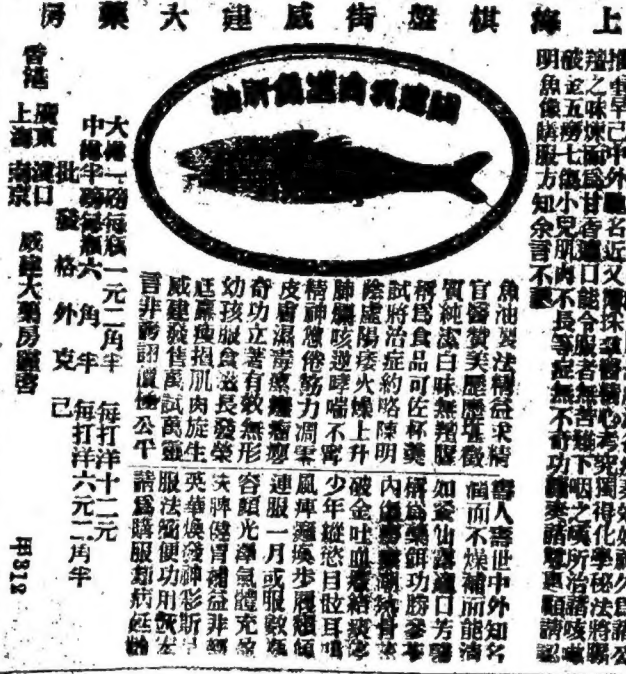 上海棋盤街威建大藥房
神久爲諸公
推重早已中外馳名近又採羣醫精心考究獨得化學秘法將腥
羶之味煉而爲甘香適口能令服者無苦難下咽之嘆所治諸咳嗽
破金五癆七傷小兒肌肉不長等症無不奇功諸惠顧請認
明魚像購服方知余言不謬
魚肝油
魚油製法精益求精
官醫贊美歷歷堪徵
質純潔白味無羶腥
稱爲食品可佐杯羹
試將治症約略陳明
陰虛陽痿火燥上升
肺癆咳逆哮喘不寧
精神憊倦筋力凋零
皮膚濕毒
奇功立著有效無形
幼孩服食滋長發榮
尫羸瘦損肌肉旋生
威建發售萬試萬靈
言非誇詡價極公平
壽人壽世中外知名
潤而不燥補而能清
如飲仙露適口芳馨
稱爲藥餌功勝參苓
內傷潮熱骨蒸
破金吐血凝結痰停
少年縱慾目眩耳鳴
風痺癱瘓步履
連服一月或服數瓶
容顏光澤氣體充盈
扶脾健胃補益非輕
英華煥發神彩斯呈
服法簡便功用
請爲購服病延齡
大樽一磅每瓶一元二角半 每打洋十二元
中樽半磅每瓶六角半 每打洋六元二角半
批發格外克己
香港 廣東 漢口 上海 南京 威建大藥房謹啓
甲312